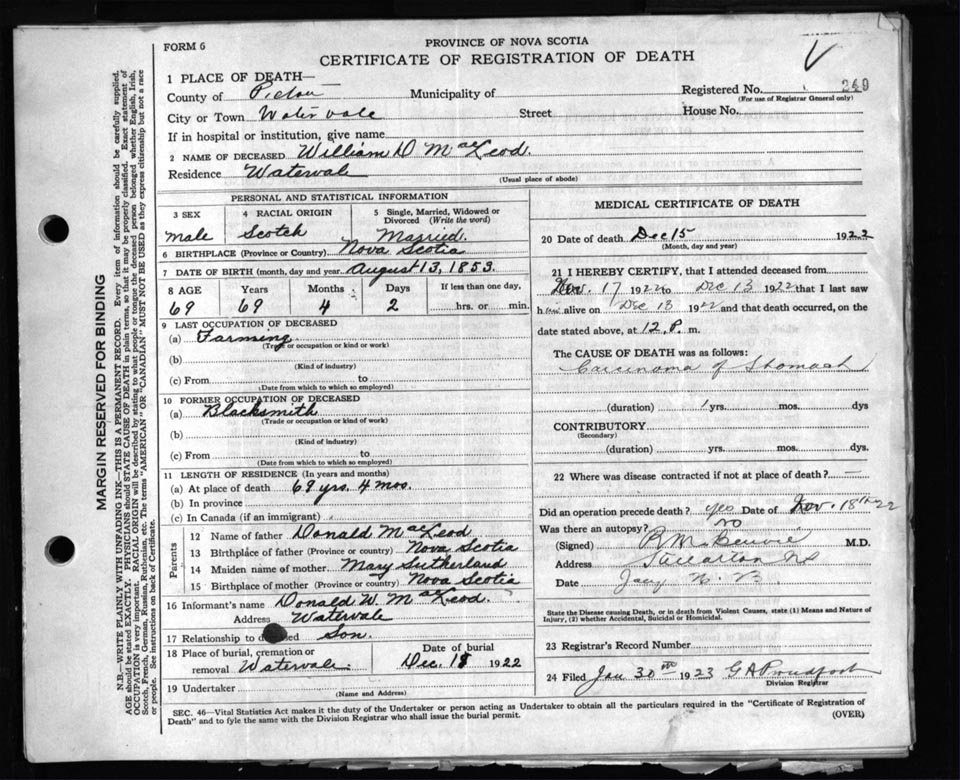 FORM 6
PROVINCE OF NOVA SCOTIA
CERTIFICATE OF REGISTRATION OF DEATH
1 PLACE OF DEATH—
County of Pictou Municipality of
Registered No. 249
(For use of Registrar General only)
City or Town Watervale Street House No.
If in hospital or institution, give name
2 NAME OF DECEASED William D MacLeod.
Residence Watervale
(Usual place of abode)
PERSONAL AND STATISTICAL INFORMATION
3 SEX 4 RACIAL ORIGIN 5 Single, Married, Widowed or Divorced (Write the word)
Male Scotch Married.
6 BIRTHPLACE (Province or Country) Nova Scotia
7 DATE OF BIRTH (month, day and year) August 13, 1853.
8 AGE Years Months Days If less than one day,
69 69 4 2 hrs. or min.
9 LAST OCCUPATION OF DECEASED
(a) Farming.
(Trade or occupation or kind or work)
(b)
(Kind of industry)
(c) From to
(Date from which to which so employed)
10 FORMER OCCUPATION OF DECEASED
(a) Blacksmith
(Trade or occupation or kind or work)
(b)
(Kind of industry)
(c) From to
(Date from which to which so employed)
11 LENGTH OF RESIDENCE (In years and months)
(a) At place of death 69 yrs. 4 mos.
(b) In province
(c) In Canada (if an immigrant)
Parents
12 Name of father Donald MacLeod
13 Birthplace of father (Province or country) Nova Scotia
14 Maiden name of mother Mary Sutherland
15 Birthplace of mother (Province or country) Nova Scotia
16 Informant's name Donald W. MacLeod.
Address Watervale
17 Relationship to Son.
18 Place of burial, cremation or removal Watervale
Date of burial
Dec. 18 1922
19 Undertaker
(Name and Address)
MEDICAL CERTIFICATE OF DEATH
20 Date of death Dec 15 1922
(Month, day and year)
21 I HEREBY CERTIFY, that I attended deceased from
Nov. 17 1922 to Dec 13 1922 that I last saw
him alive on Dec 13 1922 and that death occurred, on the
date stated above, at 12 P. m.
The CAUSE OF DEATH was as follows:
Carcinoma of Stomach
(duration) 1 yrs. mos. dys
CONTRIBUTORY
(Secondary)
(duration) yrs. mos. dys.
22 Where was disease contracted if not at place of death? —
Did an operation precede death? yes Date of Nov. 18th 22
Was there an autopsy? no
(Signed) M.D.
Address NS
Date
State the Disease causing Death, or in death from Violent Causes, state (1) Means and Nature of
Injury, (2) whether Accidental, Suicidal or Homicidal.
23 Registrar's Record Number
24 Filed Jan 30th 1923 G A Proudfoot
Division Registrar
SEC. 46—Vital Statistics Act makes it the duty of the Undertaker or person acting as Undertaker to obtain all the particulars required in the "Certificate of Registration of
Death" and to fyle the same with the Division Registrar who shall issue the burial permit.
(OVER)
MARGIN RESERVED FOR BINDING
N.B.—WRITE PLAINLY WITH UNFADING INK—THIS IS A PERMANENT RECORD. Every item of information should be carefully supplied.
AGE should be stated EXACTLY. PHYSICIANS should STATE CAUSE OF DEATH in plain terms, so that it may be properly classified. Exact statement of
OCCUPATION is very important. RACIAL ORIGIN will be described by stating to what people or tongue the deceased person belonged whether English, Irish,
Scotch, French, German, Russian, Ruthenian, etc. The terms "AMERICAN" or "CANADIAN" MUST NOT BE USED as they express citizenship but not a race
or people. See instructions on back of Certificate.